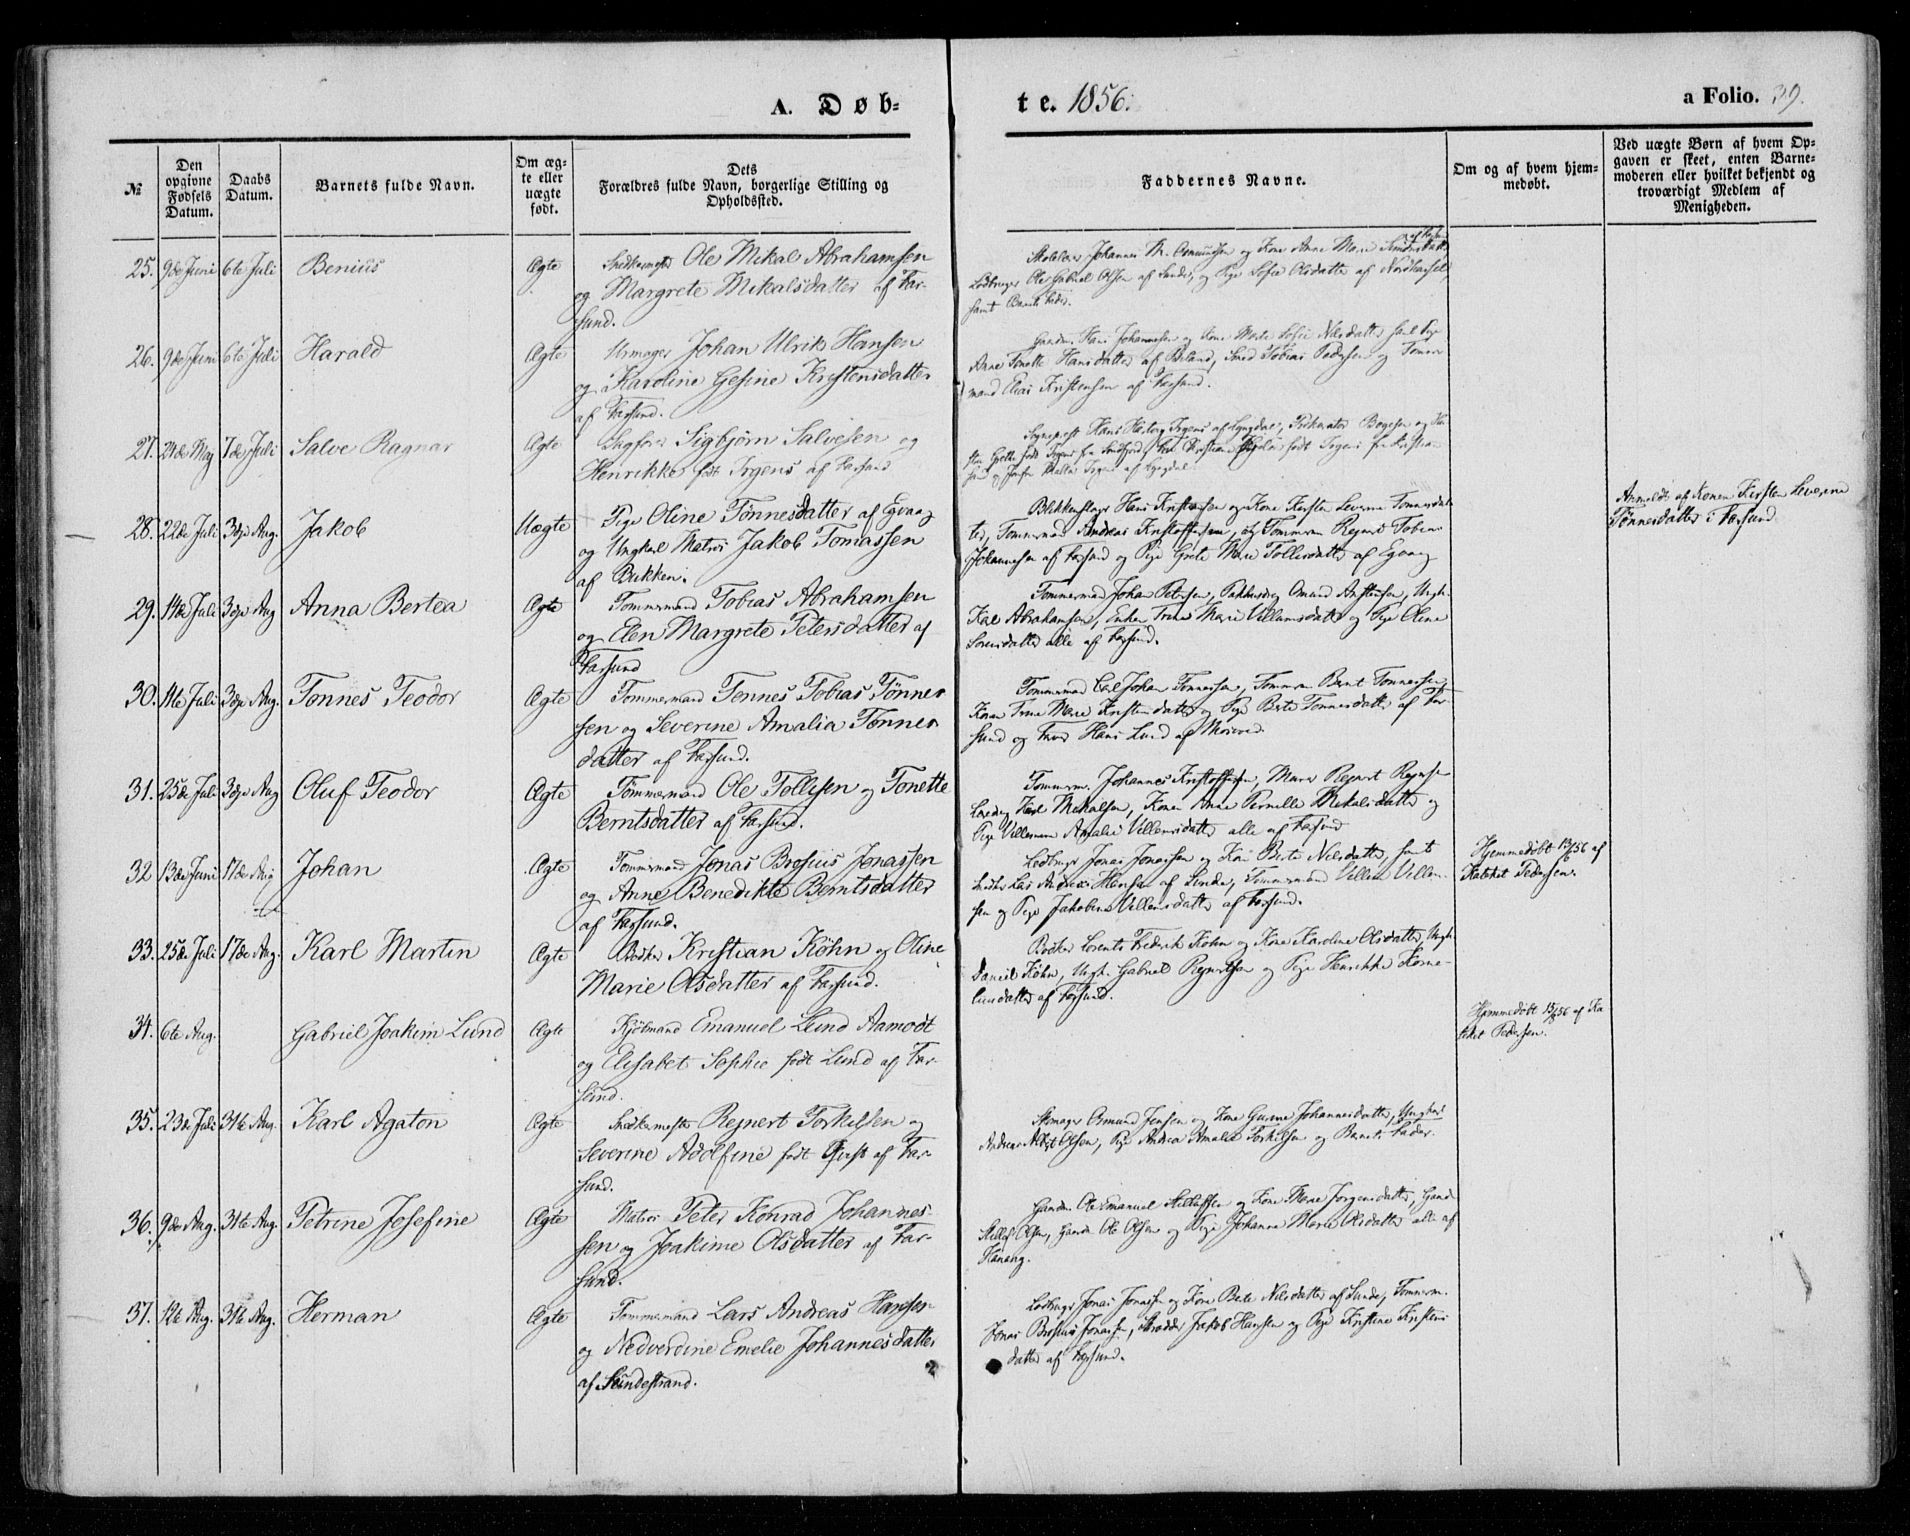 A. Døb-
te. 1856.
a Folio. 39.
№
Den opgivne Fødsels Datum.
Daabs Datum.
Barnets fulde Navn.
Om ægte eller uægte født.
Dets
Forældres fulde Navn, borgerlige Stilling og
Opholdssted.
Faddernes Navne.
Om og af hvem hjem-
medøbt.
Ved uægte Børn af hvem Op-
gaven er skeet, enten Barne-
moderen eller hvilket bekjendt og
troværdigt Medlem af
Menigheden.
25. 9de Juni 6te Juli Benius Ægte Snedkermester Ole Mikal Abrahamsen
og Margrete Mikalsdatter af Far-
sund.
Johannes M. Osmundsen og Kone Anne Marie
Ole Gabriel Olsen af Sunde, og Pige Sofie Olsdatter af Nordhassel,
samt Barnets Fader.
26. 9de Juni 6te Juli Harald Ægte Urmager Johan Ulrik Hansen
og Karoline Gesine Kristensdatter
af Farsund.
Gaardm. Hans Johannesen og Kone Marte Sofie Nilsdatter samt Pige
Anne Tonette Hansdatter af Boland, Smed Tobias Pedersen og Tømm
mand Elias Kristensen af Farsund.
27. 24de Maj 7de Juli Salve Ragnar Ægte Sagfører Sigbjørn Salvesen og
Henrikke født Irgens af Farsund
Sognepræst Hans Irgens af Lyngdal, Prokurator Boyesen og
født Irgens fra
Irgens af Lyngdal
28. 22de Juli 3die Aug. Jakob Uægte Pige Oline Tønnesdatter af Egvaag
og Ungkarl Matros Jakob Tomassen
af Bukken.
Blikkenslager Hans Kristensen og Kone Kirsten Leverine Tønnesdat-
ter, Tømmermand Andreas Kristoffersen, og Tømmerm Reynert Tobias
Johannesen af Farsund og Pige Grete Marie Tollisdatter af Egvaag
Anmeldt af Konen Kirsten Leverine
Tønnesdatter i Farsund.
29. 14de Juli 3die Aug Anna Bertea Ægte Tømmermand Tobias Abrahamsen
og Elen Margrete Petersdatter af
Farsund
Tømmermand Johan Petersen, Omund Anstensen, Ungk.
Karl Abrahamsen, Enken Trine Marie Villumsdatter og Pige Oline
Sørensdatter alle af Farsund.
30. 11te Juli 3die Aug. Tønnes Teodor Ægte Tømmermand Tønnes Tobias Tønnes
sen og Severine Amalia Tønnes
datter af Farsund.
Tømmermand Carl Johan Tønnessen, Tømmerm Bernt Tønnessen,
Kone Trine Marie Kristensdatter og Pige Berte Tønnesdatter af Far
sund og Hans Lund af
31. 25de Juli 3die Aug Oluf Teodor Ægte Tømmermand Ole Tollisen og Tonette
Berntsdatter af Farsund.
Tømmerm. Johannes Kristoffersen, Reynert
Karl Mikalsen, Konen Anne Pernille Mikalsdatter og
Pige Villemine Amalie Villumsdatter alle af Farsund
32 13de Juni 17de Aug Johan Ægte Tømmermand Jonas Brosius Jonassen
og Anne Benedikte Berntsdatter
af Farsund.
Jonas Jonassen og Kone Berte Nilsdatter, samt
Lars Andreas Hansen af Sunde, Tømmermand Villum Villum-
sen og Pige Jakobine Villumsdatter af Farsund.
Hjemmedøbt 13/6 56 af
Kateket Pedersen.
33. 25de Juli 17de Aug. Karl Martin Ægte Bødker Kristian Köhn og Oline
Marie Olsdatter af Farsund.
Bødker Lorents Fredrik Köhn og Kone Karoline Olsdatter, Ungk.
Daniel Köhn, Ungk. Gabriel Reynertsen og Pige Henrikke Korne-
liusdatter af Farsund.
34. 6te Aug. Gabriel Joakim Lund Ægte Kjøbmand Emanuel Lund Aamodt
og Elisabet Sophie født Lund af Far-
sund.
Hjemmedøbt 15/8 56 af Ka-
teket Pedersen.
35. 23de Juli 31te Aug. Karl Agaton Ægte Snedkermester Rejnert Torkilsen og
Severine Adolfine født Qvist af Far-
sund.
Skomager Osmund Jensen og Kone Gurine Johannesdatter, Ungkarl
Andreas Olsen, Pige Andrea Amalie Torkilsen og Barnets Fader.
36. 9de Aug. 31te Aug. Petrine Josefine Ægte Matros Peter Konrad Johannes-
sen og Joakime Olsdatter af Far-
sund.
Gaardm. Ole Emanuel Stillufsen og Kone Marie Jørgensdatter, Gaardm
Stilluf Olsen, Gaardm. Ole Olsen og Pige Johanne Marie Olsdatter alle af
Hanang.
37. 12te Aug. 31te Aug. Herman Ægte Tømmermand Lars Andreas Hansen
og Nedverdine Emelie Johannesdatter
af Sundestrand.
Jonas Jonassen og Kone Berte Nilsdatter af Sunde, Tømmerm.
Jonas Brosius Jonassen, Skræder Jakob Hansen og Pige Kristine Kristens
datter af Farsund.